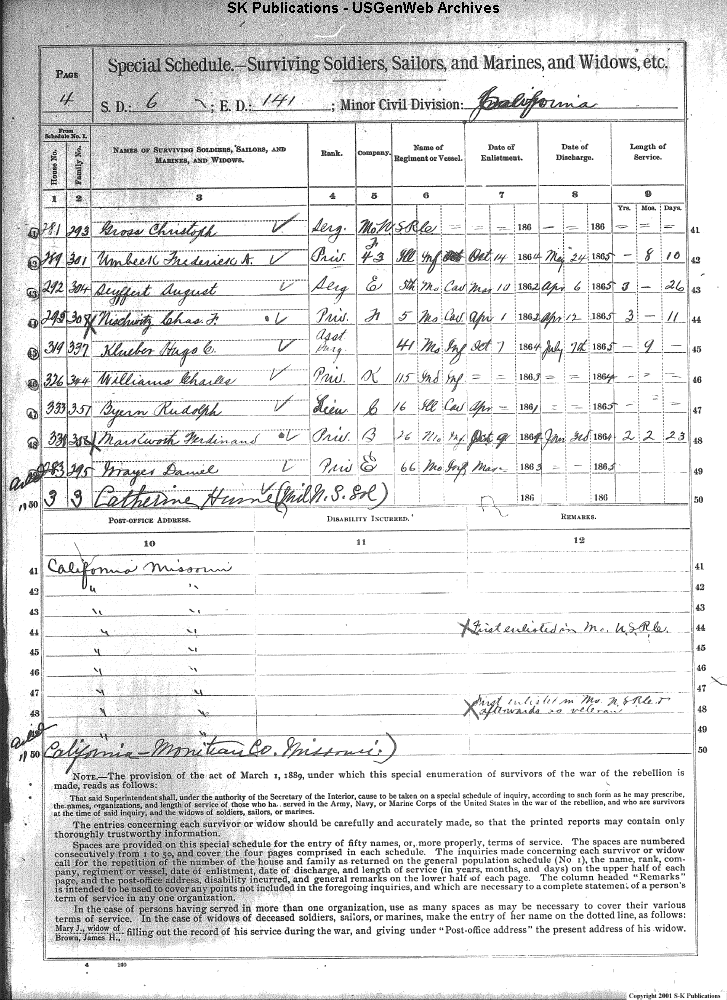 SK Publications - USGenWeb Archives
PAGE
4
Special Schedule.—Surviving Soldiers, Sailors, and Marines, and Widows, etc.
S. D.: 6 ; E. D.: 141 ; Minor Civil Division: California
From Schedule No. 1.
House No. Family No. NAMES OF SURVIVING SOLDIERS, SAILORS, AND MARINES, AND WIDOWS. Rank. Company. Name of Regiment or Vessel. Date of Enlistment. Date of Discharge. Length of Service.
1 2 3 4 5 6 7 8 9
Yrs. Mos. Days.
41 281 293 Gross Christoph Serg. Mo U S R C = = = 186 - = - 186 = = = 41
42 289 301 Umbeck Frederick A. Priv. 43 Ill Inf Oct 14 1864 May 24 1865 - 8 10 42
43 292 304 Seyffert August Serg E 5th Mo Cav Mar 10 1862 Apr 6 1865 3 - 26 43
44 295 308 Nischwitz Chas. F. Priv. H 5 Mo Cav Apr 1 1862 Apr 12 1865 3 - 11 44
45 319 337 Klueber Hugo C. Asst Surg. 41 Mo Inf Oct 7 1864 July 7th 1865 - 9 - 45
46 326 344 Williams Charles Priv. K 115 Ind Inf = = 1863 = = 1864 - = = 46
47 333 351 Byern Rudolph Lieu C 16 Ill Cav Apr = 1861 = = 1865 - = = 47
48 338 356 Marskworth Ferdinand Priv. B 26 Mo Inf 186 Jan 3d 1864 2 2 23 48
283 295 Grayes Daniel Priv E 66 Mo Inf Mar 1863 - = 1865 49
50 3 3 Catherine Hume (Mil N. S. Sol) 186 186 50
POST-OFFICE ADDRESS. DISABILITY INCURRED. REMARKS.
10 11 12
41 California Missouri 41
42 " " 42
43 " " 43
44 " " X First enlisted in Mo. U.S.R.C. 44
45 " " 45
46 " " 46
47 " " 47
48 " " X First enlisted in Mo. U S R C & afterwards as veteran 48
" " 49
50 California - Moniteau Co. Missouri.) 50
NOTE.—The provision of the act of March 1, 1889, under which this special enumeration of survivors of the war of the rebellion is
made, reads as follows:
That said Superintendent shall, under the authority of the Secretary of the Interior, cause to be taken on a special schedule of inquiry, according to such form as he may prescribe,
the names, organizations, and length of service of those who ha served in the Army, Navy, or Marine Corps of the United States in the war of the rebellion, and who are survivors
at the time of said inquiry, and the widows of soldiers, sailors, or marines.
The entries concerning each survivor or widow should be carefully and accurately made, so that the printed reports may contain only
thoroughly trustworthy information.
Spaces are provided on this special schedule for the entry of fifty names, or, more properly, terms of service. The spaces are numbered
consecutively from 1 to 50, and cover the four pages comprised in each schedule. The inquiries made concerning each survivor or widow
call for the repetition of the number of the house and family as returned on the general population schedule (No 1), the name, rank, com-
pany, regiment or vessel, date of enlistment, date of discharge, and length of service (in years, months, and days) on the upper half of each
page, and the post-office address, disability incurred, and general remarks on the lower half of each page. The column headed "Remarks"
is intended to be used to cover any points not included in the foregoing inquiries, and which are necessary to a complete statement of a person's
term of service in any one organization.
In the case of persons having served in more than one organization, use as many spaces as may be necessary to cover their various
terms of service. In the case of widows of deceased soldiers, sailors, or marines, make the entry of her name on the dotted line, as follows:
Mary J., widow of
Brown, James H., filling out the record of his service during the war, and giving under "Post-office address" the present address of his widow.
4 180
Copyright 2001 S-K Publications